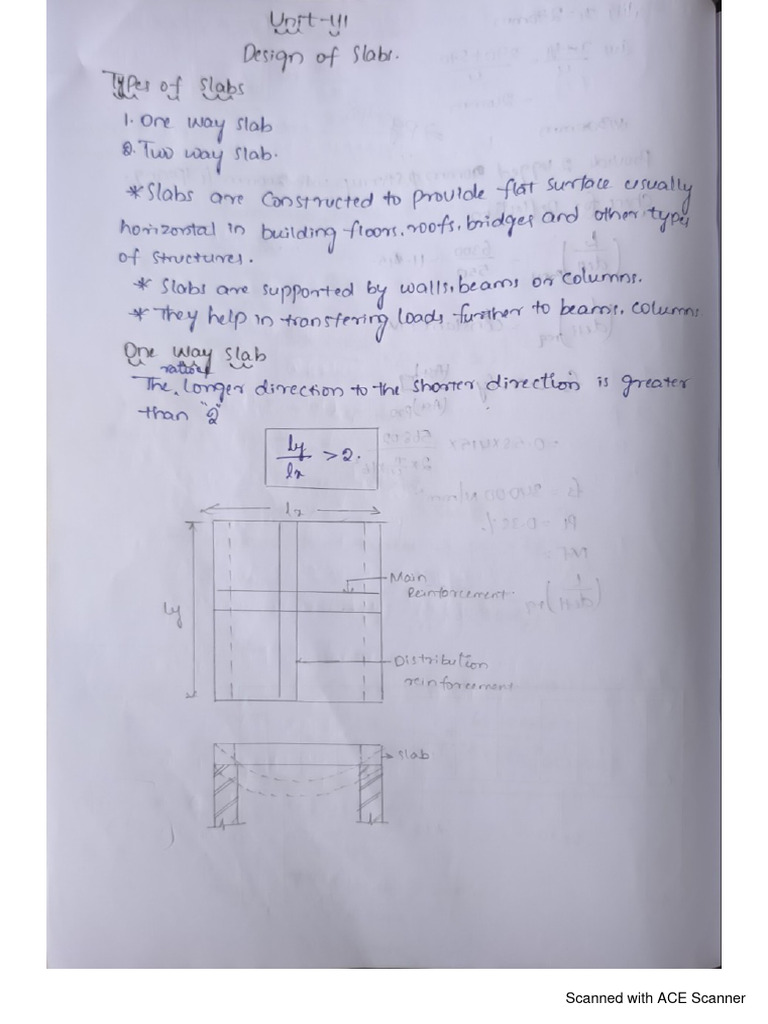 Unit-VI
Design of Slabs.
Types of Slabs
1. One way slab
2. Two way slab.
* Slabs are constructed to provide flat surface usually
horizontal in building floors, roofs, bridges and other types
of structures.
* Slabs are supported by walls, beams or columns.
* They help in transfering loads further to beams, columns
One way slab
The ratio of longer direction to the shorter direction is greater
than "2"
ly/lx > 2.
lx
Main
Reinforcement.
ly
Distribution
reinforcement
slab
Scanned with ACE Scanner